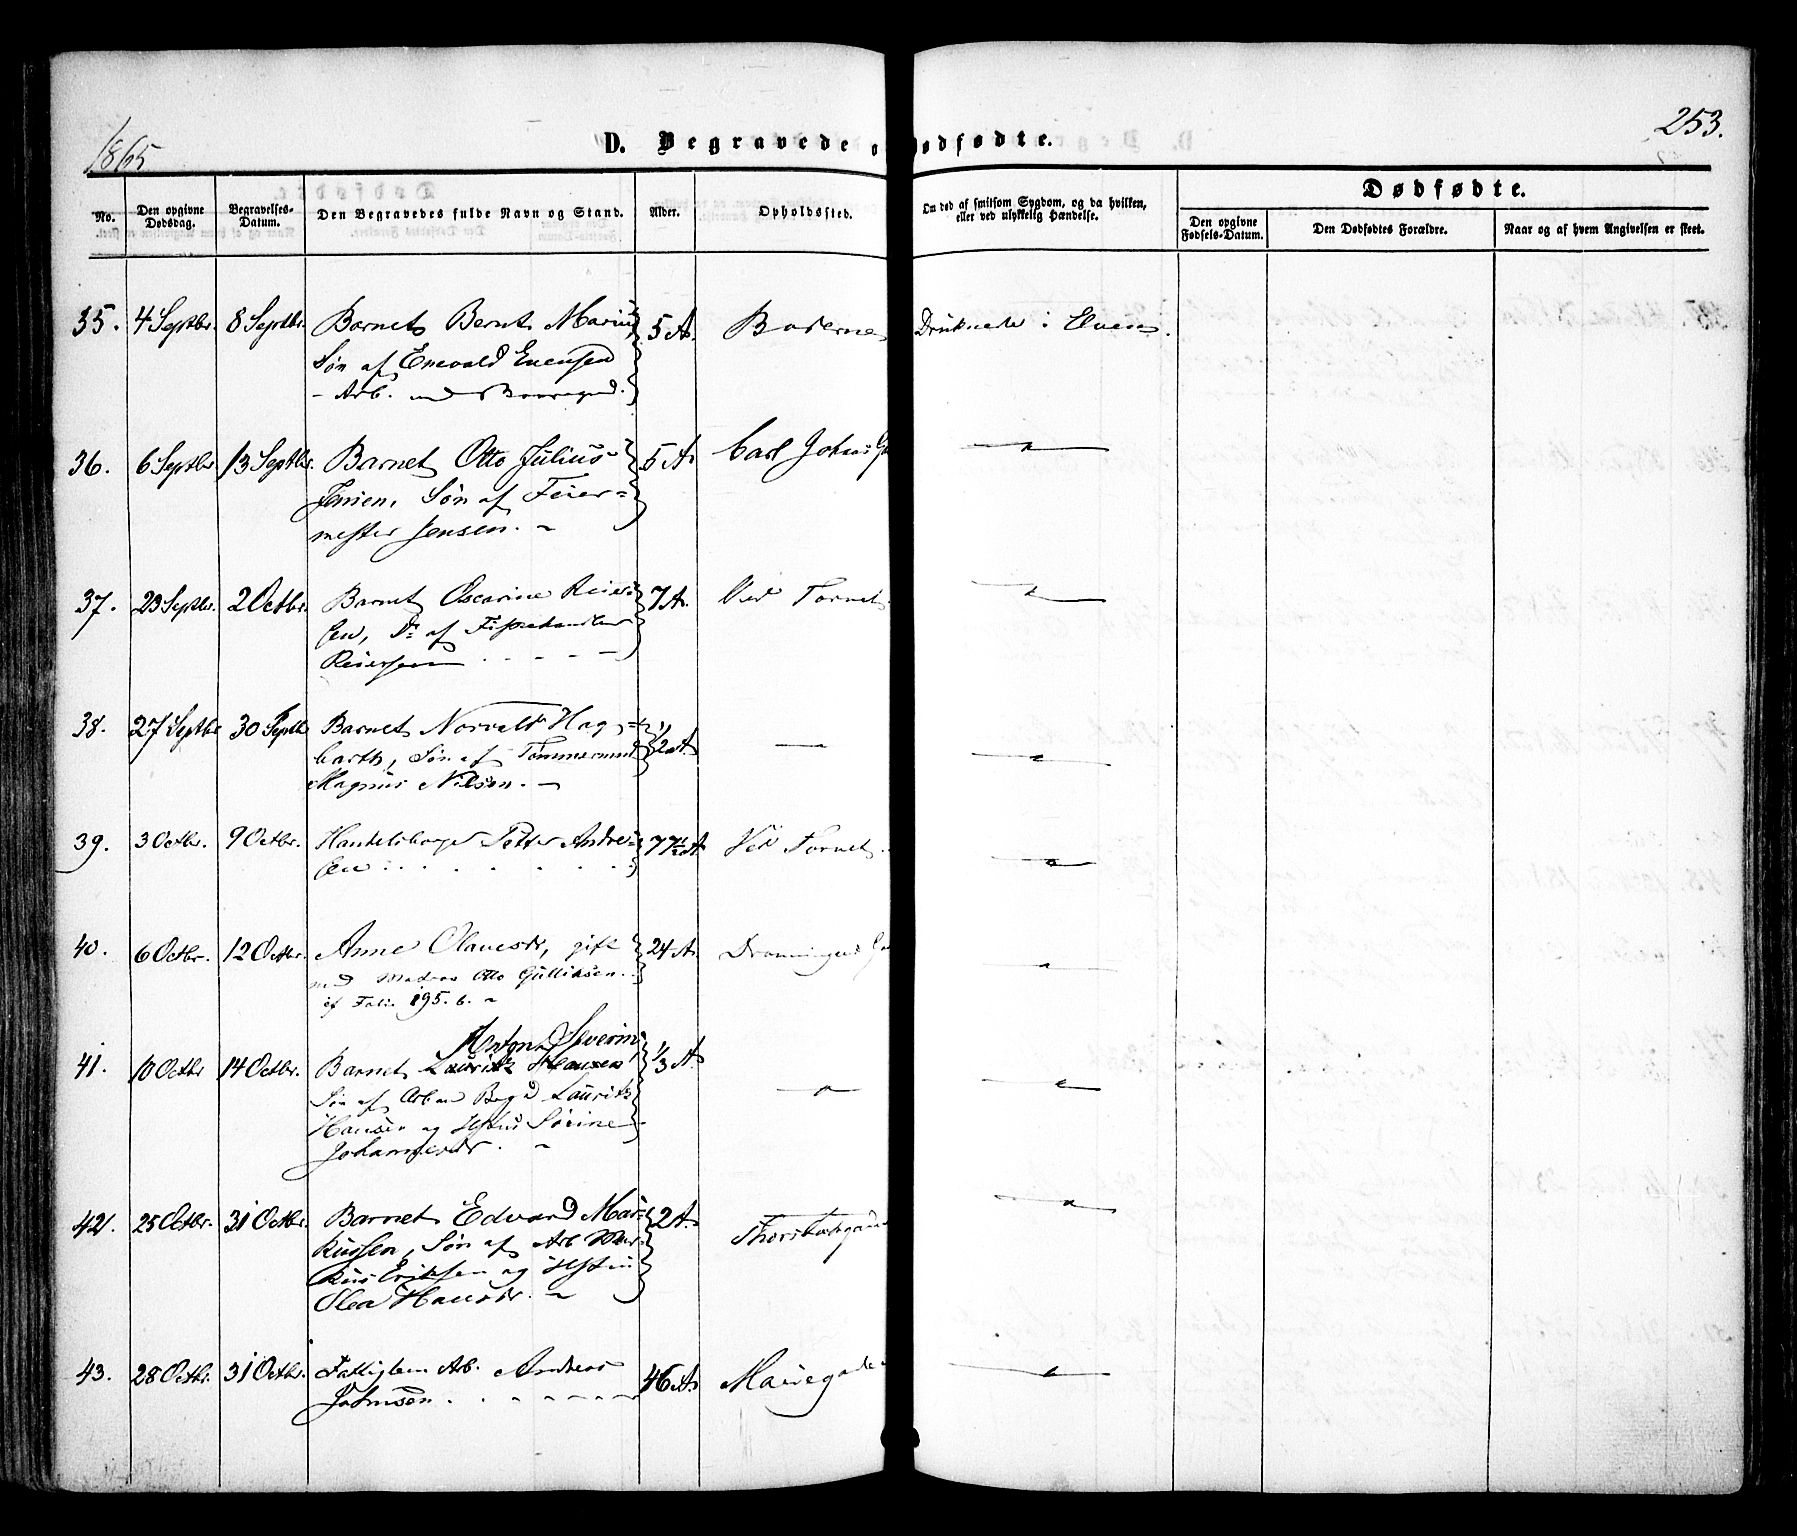 1865
253.
D. Begravede o
ødfødte.
No.
Den opgivne Dødsdag.
Begravelses-Datum.
Den Begravedes fulde Navn og Stand.
Alder.
Opholdssted.
Om død af smitsom Sygdom, og da hvilken, eller ved ulykkelig Hændelse.
Dødfødte.
Den opgivne Fødsels-Datum.
Den Dødfødtes Forældre.
Naar og af hvem Angivelsen er skeet.
35. 4 Septbr. 8 Septbr. Barnet Bernt Marius 5 A. Druknede i Elven.
Søn af Enevald Evensen
- Arb. med
36. 6 Septbr. 13 Septbr. Barnet Otto Julius 5 A. Carl Johns G
Jensen, Søn af Feier=
mester Jensen. -
37. 23 Septbr. 2 Octbr. Barnet Oscarine Reier= 7 A. Ved Torvet
sen, Dr af Fiskehandler
Reiersen
38. 27 Septbr 30 Septb Barnet Norvald Hag= 1/2 A. —
barth, Søn af Tømmermand
Magnus Nilsen. -
39. 3 Octbr. 9 Octbr. Handelsborger Petter Andre= 77 A. Ved Torvet.
sen
40. 6 Octbr. 12 Octbr. Anne Olavesdr, gift 24 A. Dronningens Ga
med Madros Otto Gulliksen.
cf Folio 195. 6. -
Anton Severin
41. 10 Octbr 14 Octbr. Barnet Lauritz Hansen 1/3 A. -
Søn af Arb Lauritz
Hansen og Hstru Sörine
Johannesdr. -
42. 25 Octbr. 31 Octbr. Barnet Edvard Mar= 2 A.
kussen, Søn af Arb Mar=
kus Eriksen og Hstru
Olea Hansdr. -
43. 28 Octbr. 31 Octbr. Fattiglem Arb. Anders 46 A.
Johnsen.